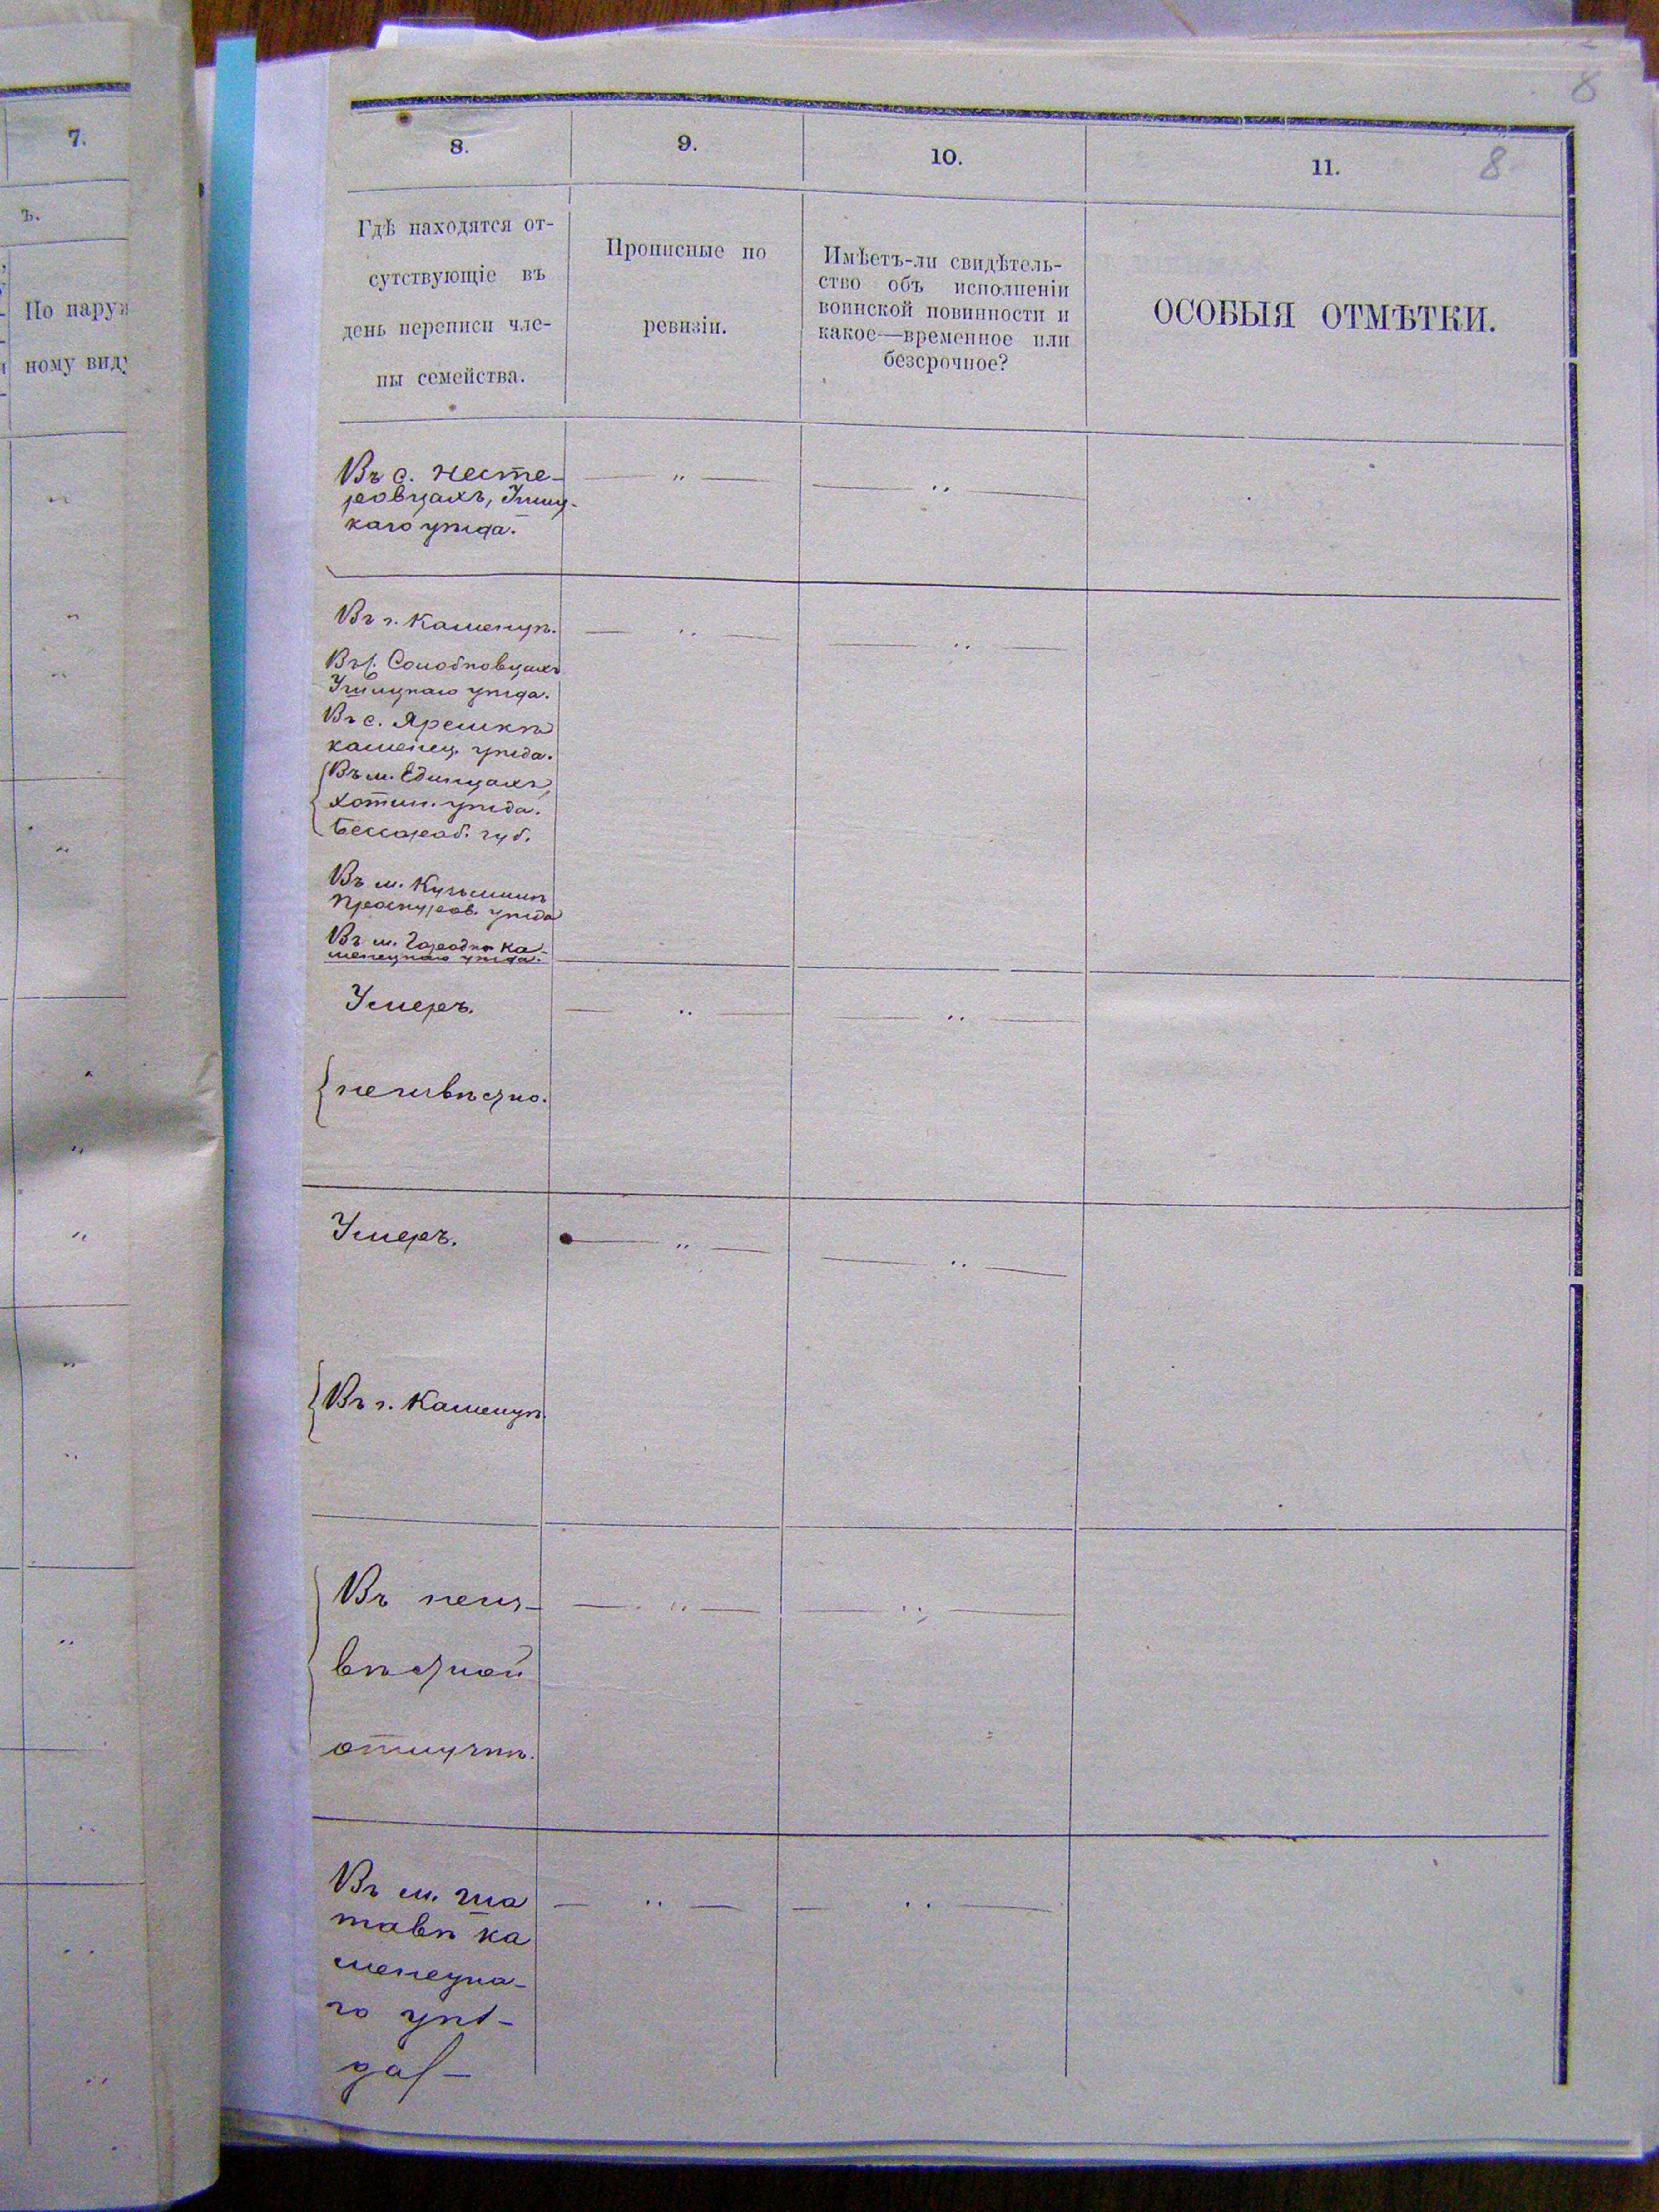 7.
ъ.
По наруж
ному виду
8
8
8.
9.
10.
11.
Гдѣ находятся от-
сутствующіе въ
день переписи чле-
ны семейства.
Прописные по
ревизіи.
Имѣетъ-ли свидѣтель-
ство объ исполненіи
воинской повинности и
какое—временное или
безсрочное?
ОСОБЫЯ ОТМѢТКИ.
Въ с. Несте-
ровцахъ, Ушиц-
каго уѣзда.
Въ г. Каменцѣ.
Въ с. Солобковцахъ
Ушицкаго уѣзда.
Въ с. Яремкѣ
каменец. уѣзда.
Въ м. Единцахъ,
Хотин. уѣзда.
Бессараб. губ.
Въ м. Кузьминѣ
Проскуров. уѣзда
Въ м. Городкѣ Ка-
менецкаго уѣзда.
Умеръ.
неизвѣстно.
Умеръ.
Въ г. Каменцѣ.
Въ неиз-
вѣстной
отлучкѣ.
Въ м. Ша
тавѣ ка
менецка-
го уѣз-
да